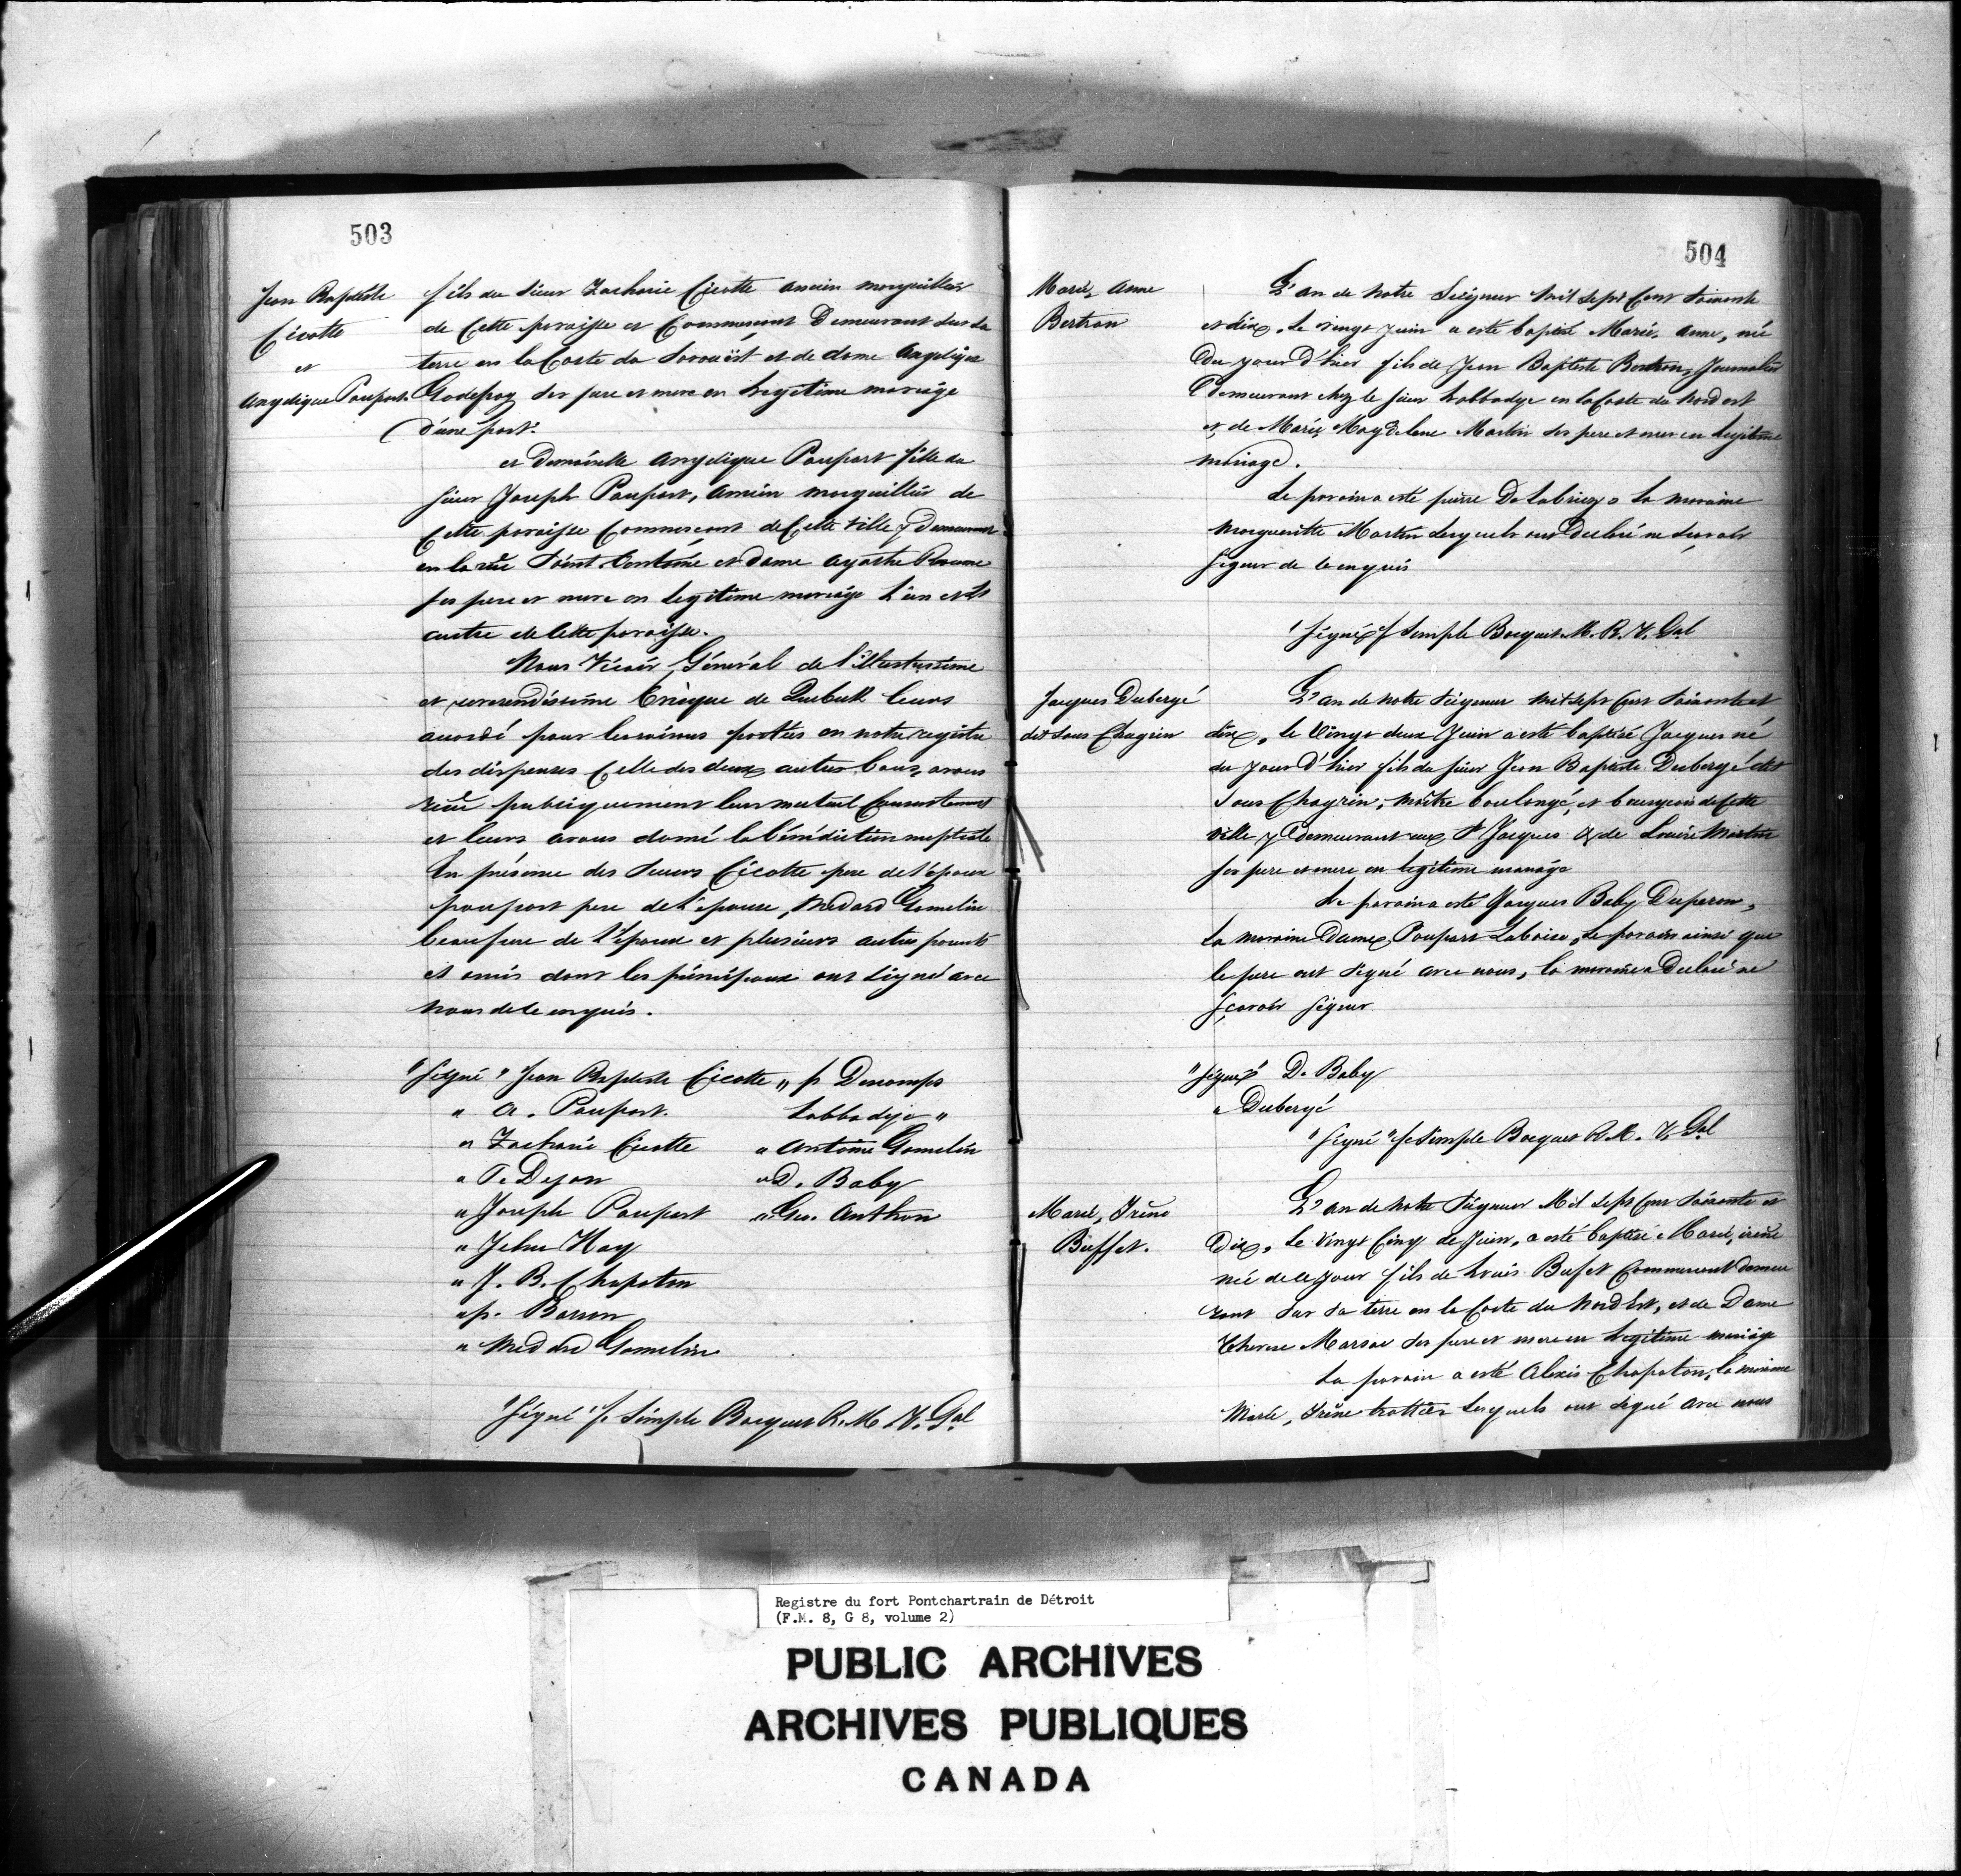 503
Jean Baptiste
Cicotte
et
Angelique Poupart
fils du sieur Zacharie Cicotte ancien marguillier
de Cette paroisse et Commercant Demeurant sur sa
terre en la Coste du Sorouëst et de dame Angelique
Godefroy ses pere et mere en Legitime mariage
D'une part.
et Demoiselle Angelique Poupart fille du
sieur Joseph Poupart, Ancien marguillier de
Cette paroisse Commercant de Cette Ville y Demeurant
en la rüe Saint et Dame Agathe Reaume
ses pere et mere en legitime mariage L'un et L
autre de Cette paroisse.
Nous Vicair Général de l'illustrissime
et reverendissime Eveque de Quebeck leurs
accordé pour les raisons porttées en notre registre
des dispenses Celle des deux autres bans, avons
reçu publiquement leur mutuel Consentement
et leurs avons donné la bénédiction nuptiale
En présence des Sieurs Cicotte pere de l'époux
poupart pere de l'epouse, Medard Gamelin
beaupere de l'époux et plusieurs autres parents
et amis dont les principaux ont signé avec
nous de ce enquis.
"Signé" Jean Baptiste Cicotte " p Descomps
" A. Poupart. Labbadye "
" Zacharie Cicotte " Antoine Gamelin
" T. Dejon " D. Baby
" Joseph Poupart " Geo. Anthon
" Jehu Hay
" J. B. Chapoton
" p. Barron
" Medard Gamelin
"Signé" f. Simple Bocquet R. M V. Gal
504
Marie, Anne
Bertron
L'an de Notre Seigneur Mil Sept Cent Soixante
et dix, Le vingt Juin a esté baptisé Marie, Anne, née
Du jour D'hier fils de Jean Baptiste Bertron, Journalier
Demeurant chez le sieur Labbadye en la Coste du Nord est
et de Marie Magdelene Martin ses pere et mere en Legitime
mariage.
Le parain a esté pierre la maraine
Margueritte Martin Lesquels ont Declaré ne Scavoir
signer de ce enquis
"Signé" f Simple Bocquet M. R. V. Gal
Jacques Dubergé
dit Sans Chagrin
L'an de Notre Seigneur Mil Sept Cent Soixante et
dix, le Vingt deux Juin a esté baptisé Jacques né
du jour D'hier fils du sieur Jean Baptiste Dubergé dit
Sans Chagrin, maître boulangé, et bourgeois de Cette
Ville y Demeurant rue St Jacques & de Louise Martin
ses pere et mere en legitime mariage
Le parain a esté Jacques Baby Duperon,
La maraine Dame Poupart Laboise, Le parain ainsi que
le pere ont signé avec nous, la maraine a Declaré ne
sçavoir signer
"Signé" D. Baby
" Dubergé
"Signé" f Simple Bocquet R. M. V. Gal
Marie, Irêne
Buffet.
L'an de Notre Seigneur Mil Sept Cent Soixante et
Dix, Le Vingt Cinq de Juin, a esté baptisé Marie, irêne
née de ce jour fils de Louis Bufet Commercant demeu
rant sur sa terre en la Coste du Nord Est, et de Dame
Therese Marsac ses pere et mere en Legitime mariage
Le parain a esté Alexis Chapoton, la maraine
Marie, Irêne trottier Lesquels ont signé avec nous
Registre du fort Pontchartrain de Détroit
(F.M. 8, G 8, volume 2)
PUBLIC ARCHIVES
ARCHIVES PUBLIQUES
CANADA